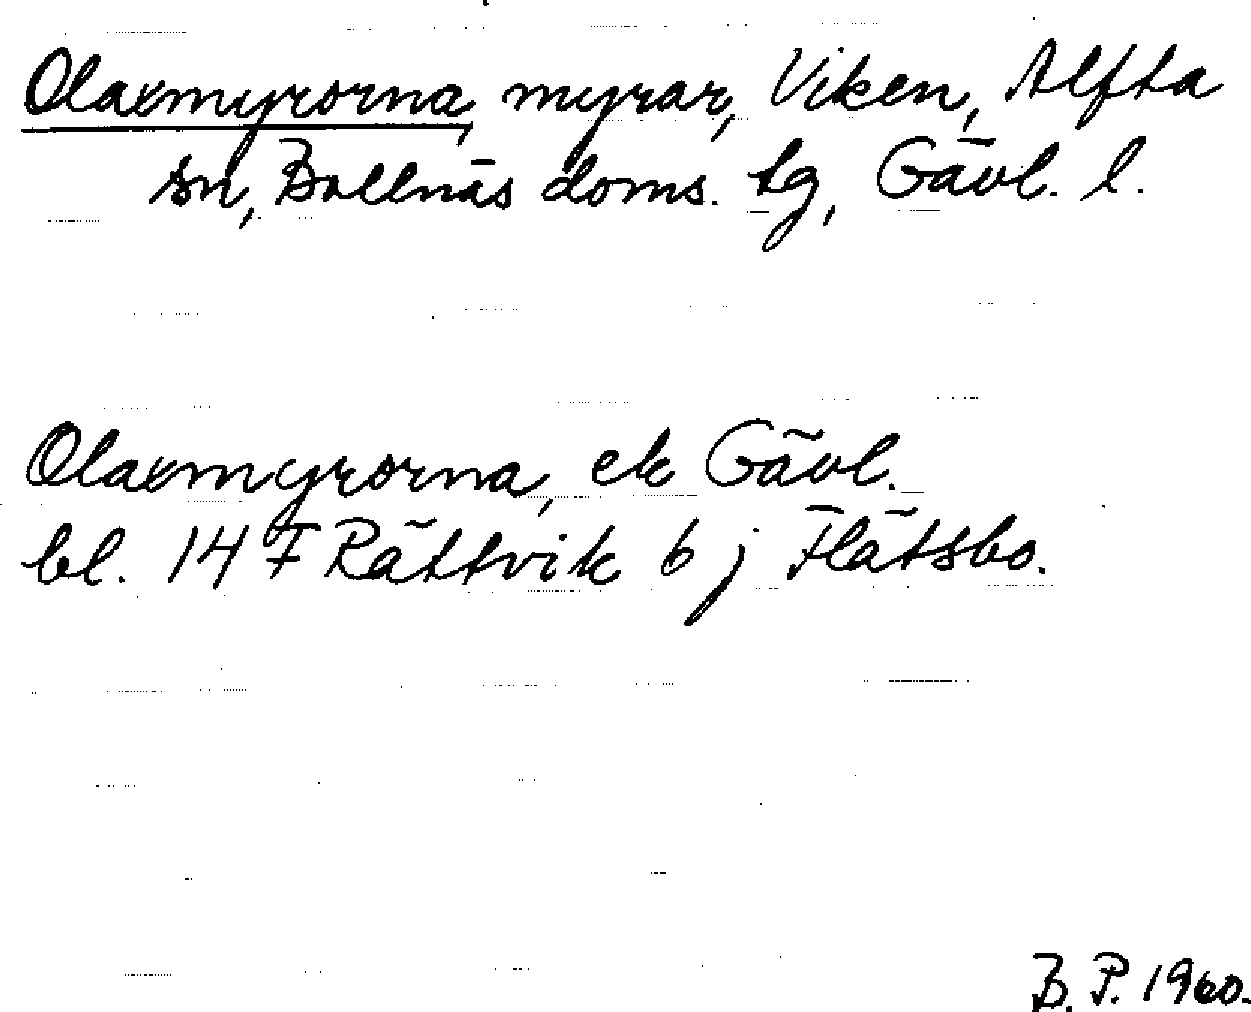 Olaxmyrorna, myrar, Viken, Alfta
sn, Bollnäs doms. tg, Gävl. l.
Olaxmyrorna, ek Gävl.
bl. 14 F Rättvik 6 j Flätsbo.
B. P. 1960.